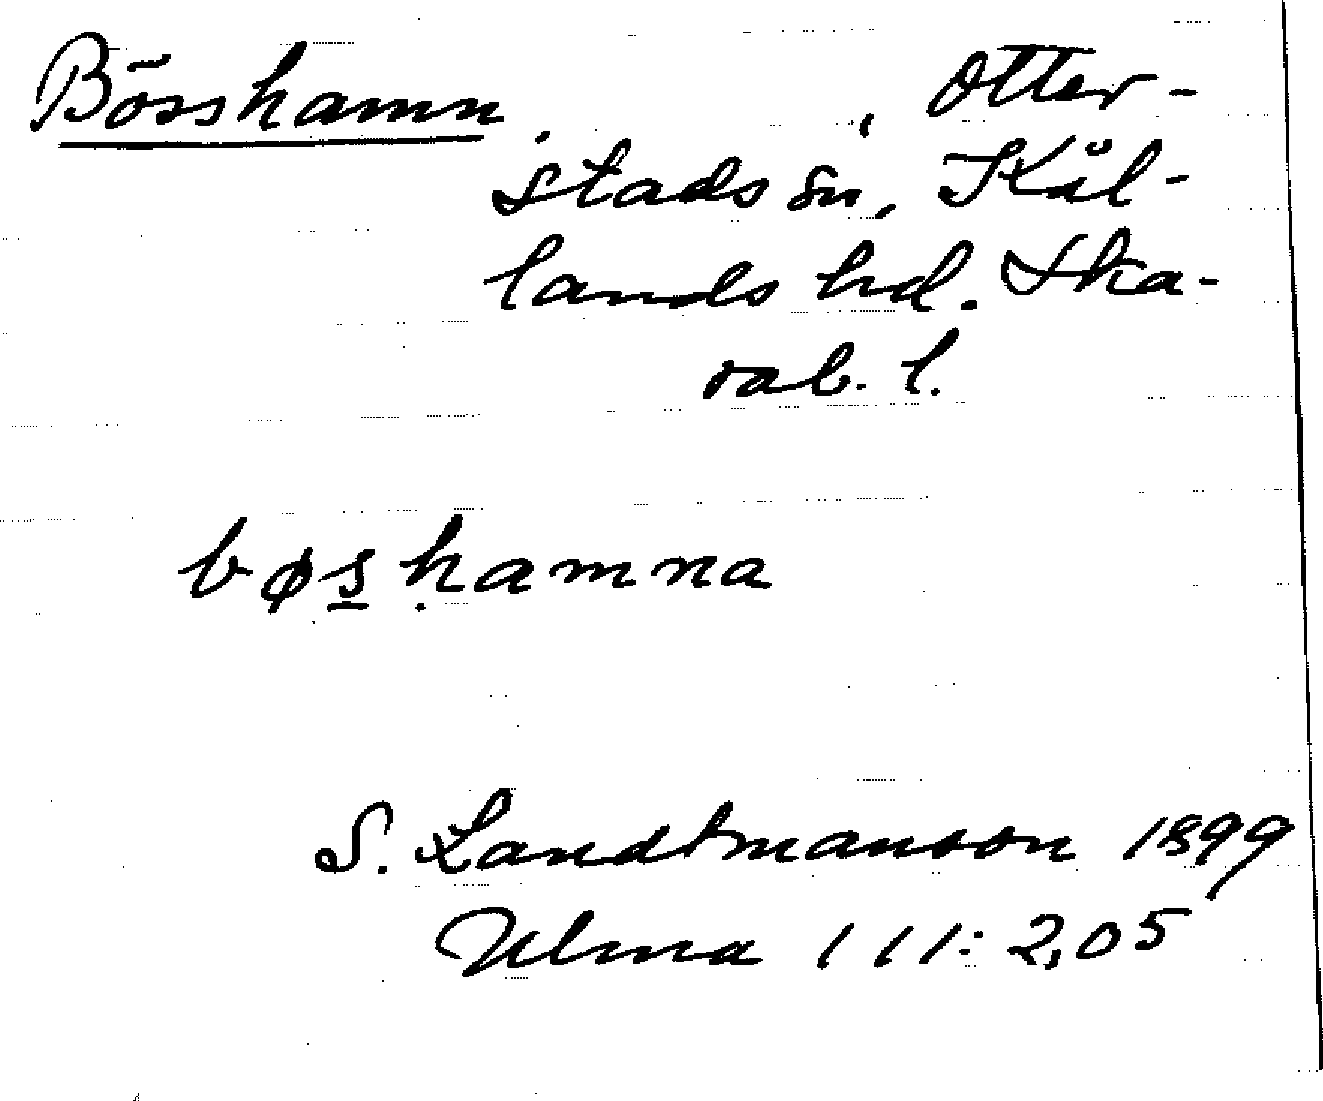 Bösshamn, Otter-
stads sn, Kål-
lands hd. Ska-
rab. l.
bøs̠ḥamna
S. Landtmanson 1899
Ulma 111:2,05